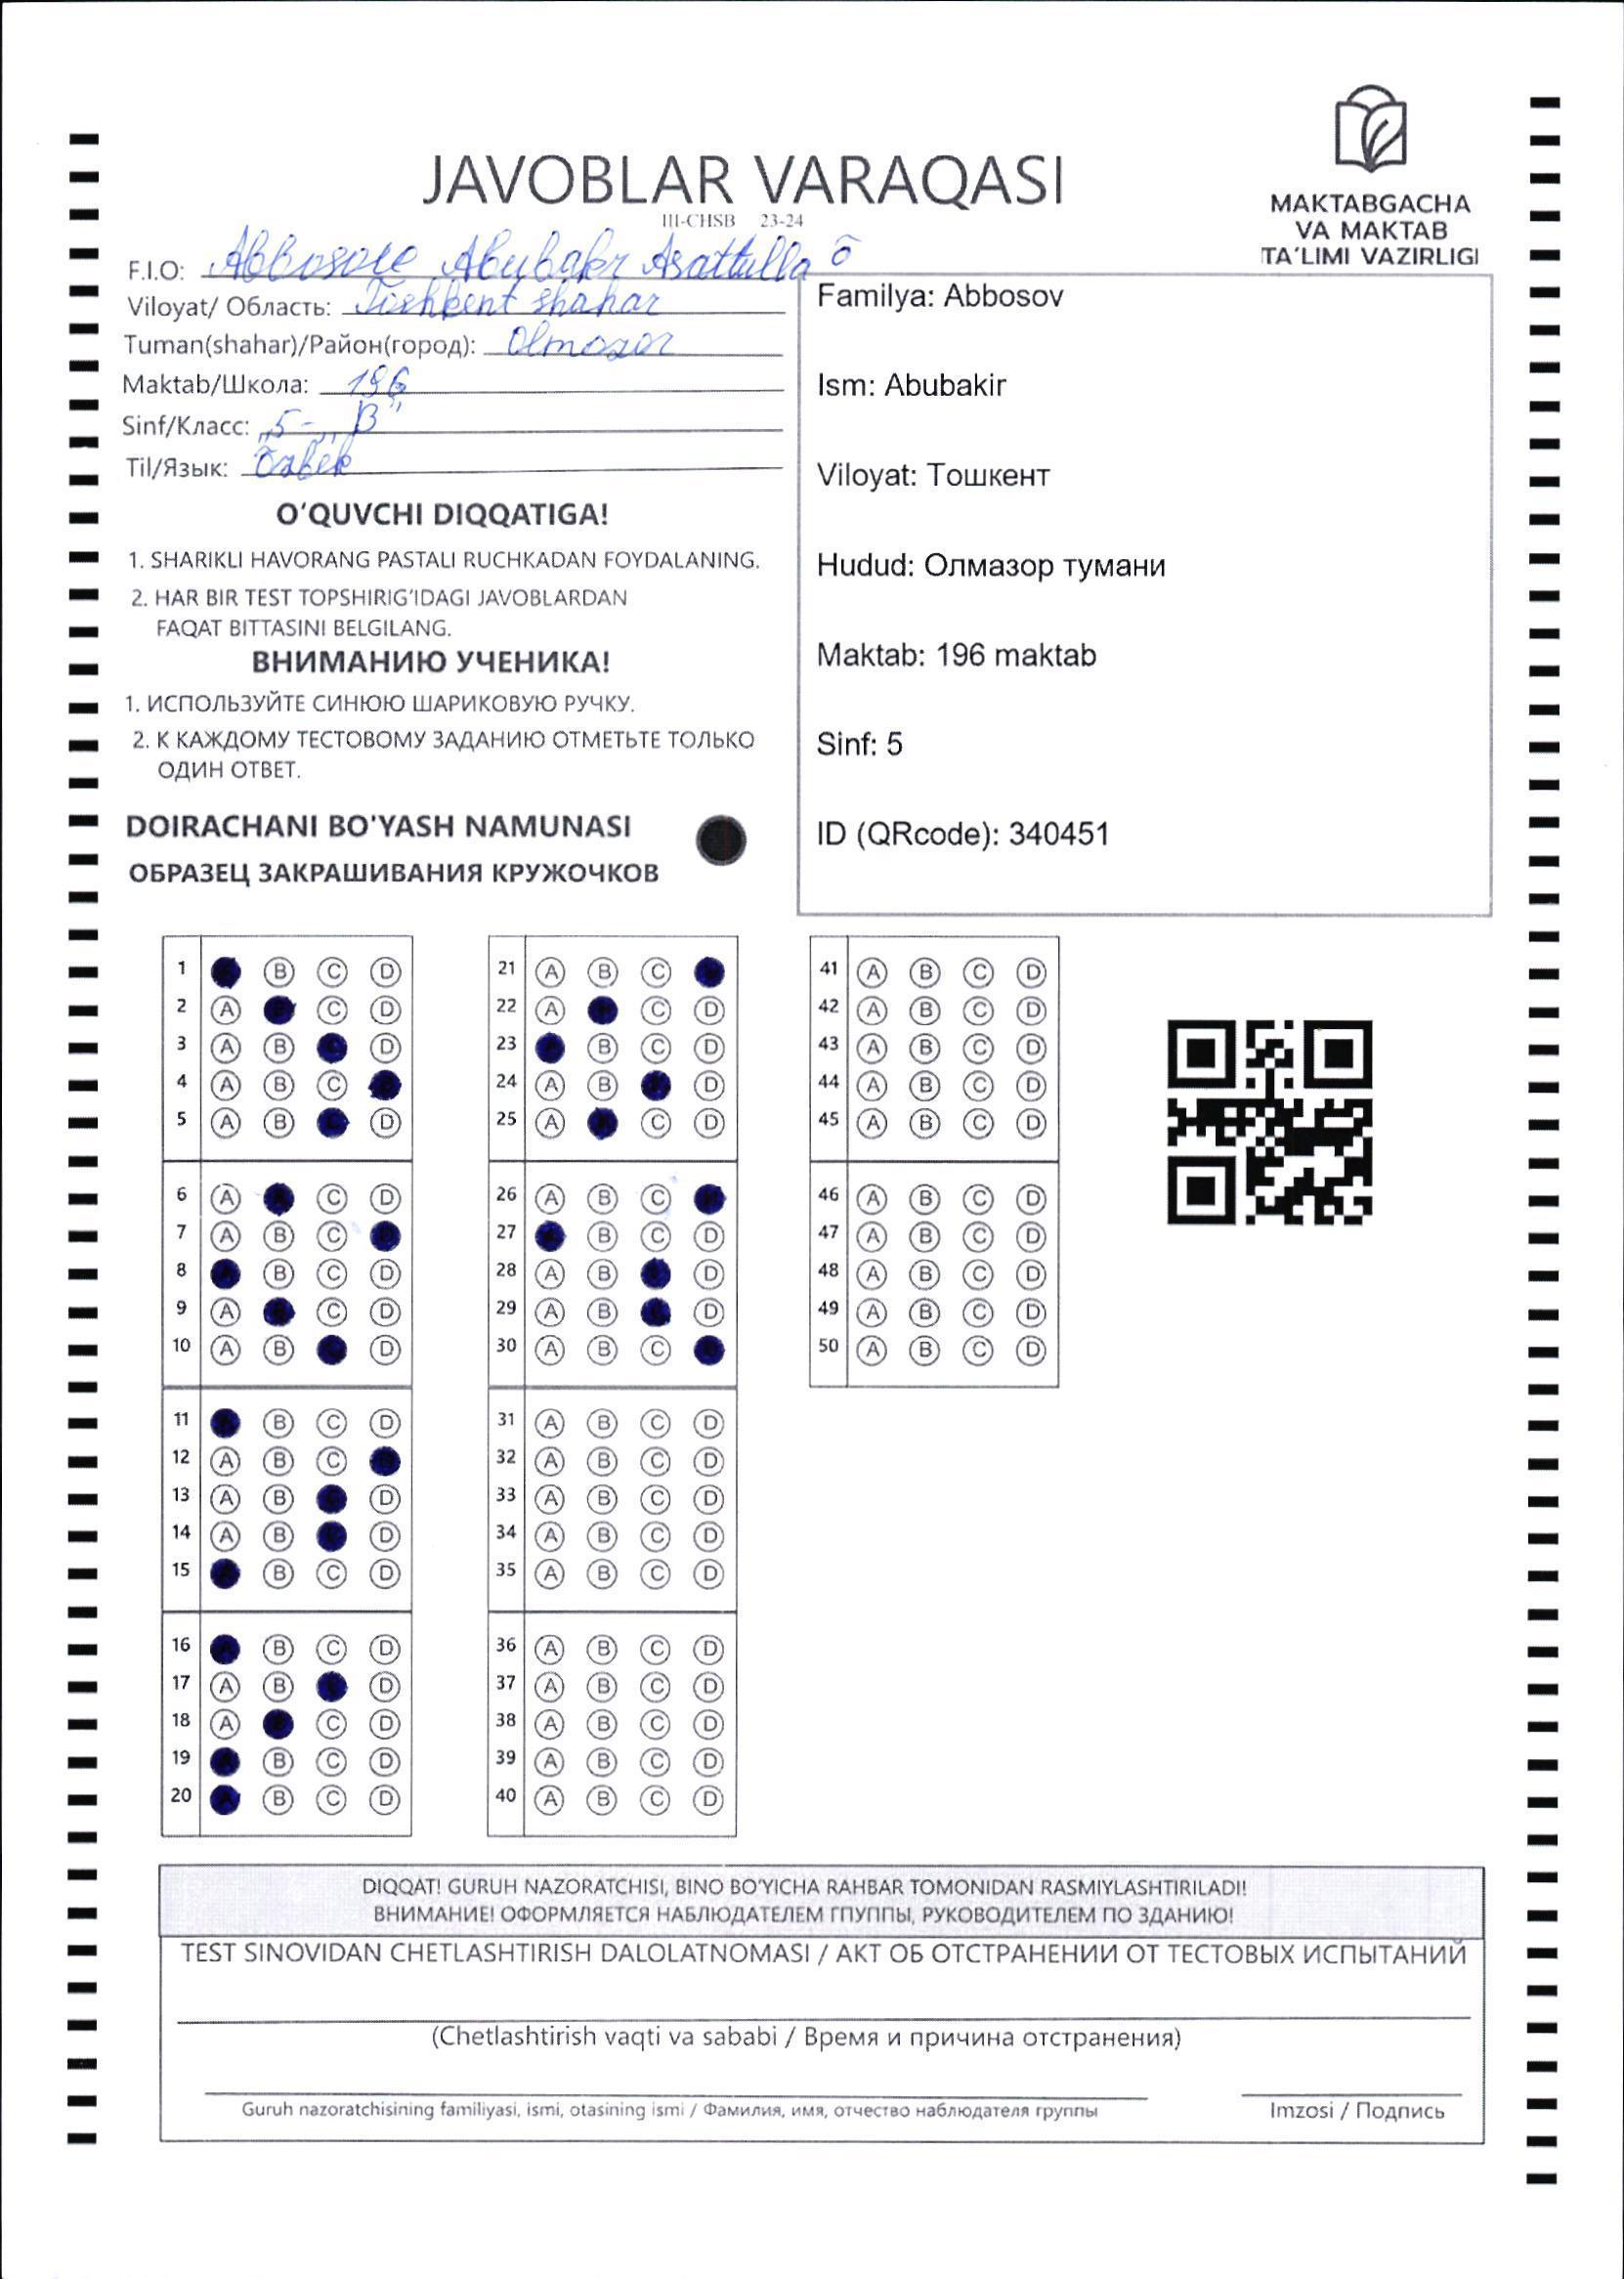 JAVOBLAR VARAQASI
III-CHSB 23-24
MAKTABGACHA
VA MAKTAB
TA'LIMI VAZIRLIGI
F.I.O: Abbosov Abubakr Asattulla õ
Viloyat/ Область: Toshkent shahar
Tuman(shahar)/Район(город): Olmozor
Maktab/Школа: 196
Sinf/Класс: „5-„B"
Til/Язык: Õzbek
O'QUVCHI DIQQATIGA!
1. SHARIKLI HAVORANG PASTALI RUCHKADAN FOYDALANING.
2. HAR BIR TEST TOPSHIRIG'IDAGI JAVOBLARDAN
FAQAT BITTASINI BELGILANG.
ВНИМАНИЮ УЧЕНИКА!
1. ИСПОЛЬЗУЙТЕ СИНЮЮ ШАРИКОВУЮ РУЧКУ.
2. К КАЖДОМУ ТЕСТОВОМУ ЗАДАНИЮ ОТМЕТЬТЕ ТОЛЬКО
ОДИН ОТВЕТ.
DOIRACHANI BO'YASH NAMUNASI
ОБРАЗЕЦ ЗАКРАШИВАНИЯ КРУЖОЧКОВ
Familya: Abbosov
Ism: Abubakir
Viloyat: Тошкент
Hudud: Олмазор тумани
Maktab: 196 maktab
Sinf: 5
ID (QRcode): 340451
1 B C D
2 A C D
3 A B D
4 A B C
5 A B D
6 A C D
7 A B C
8 B C D
9 A C D
10 A B D
11 B C D
12 A B C
13 A B D
14 A B D
15 B C D
16 B C D
17 A B D
18 A C D
19 B C D
20 B C D
21 A B C
22 A C D
23 B C D
24 A B D
25 A C D
26 A B C
27 B C D
28 A B D
29 A B D
30 A B C
31 A B C D
32 A B C D
33 A B C D
34 A B C D
35 A B C D
36 A B C D
37 A B C D
38 A B C D
39 A B C D
40 A B C D
41 A B C D
42 A B C D
43 A B C D
44 A B C D
45 A B C D
46 A B C D
47 A B C D
48 A B C D
49 A B C D
50 A B C D
DIQQAT! GURUH NAZORATCHISI, BINO BO'YICHA RAHBAR TOMONIDAN RASMIYLASHTIRILADI!
ВНИМАНИЕ! ОФОРМЛЯЕТСЯ НАБЛЮДАТЕЛЕМ ГПУППЫ, РУКОВОДИТЕЛЕМ ПО ЗДАНИЮ!
TEST SINOVIDAN CHETLASHTIRISH DALOLATNOMASI / АКТ ОБ ОТСТРАНЕНИИ ОТ ТЕСТОВЫХ ИСПЫТАНИЙ
(Chetlashtirish vaqti va sababi / Время и причина отстранения)
Guruh nazoratchisining familiyasi, ismi, otasining ismi / Фамилия, имя, отчество наблюдателя группы
Imzosi / Подпись